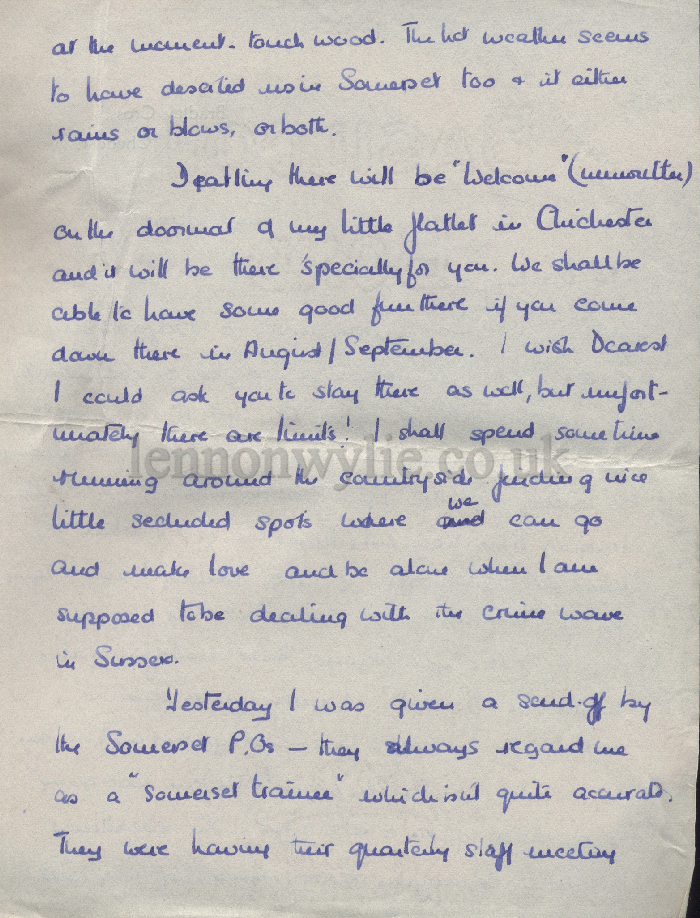 at the moment - touch wood. The hot weather seems
to have deserted us in Somerset too & it either
rains or blows, or both.
Darling there will be "Welcome" (unwritten)
on the doormat of my little flatlet in Chichester
and it will be there 'specially for you. We shall be
able to have some good fun there if you come
down there in August/September. I wish Dearest
I could ask you to stay there as well, but unfort-
unately there are limits! I shall spend some time
running around the countryside finding nice
little secluded spots where we can go
and make love and be alone when I am
supposed to be dealing with the crime wave
in Sussex.
Yesterday I was given a send-off by
the Somerset P.Os — they always regard me
as a "Somerset trainee" which isn't quite accurate.
They were having their quarterly staff meeting
lennonwylie.co.uk